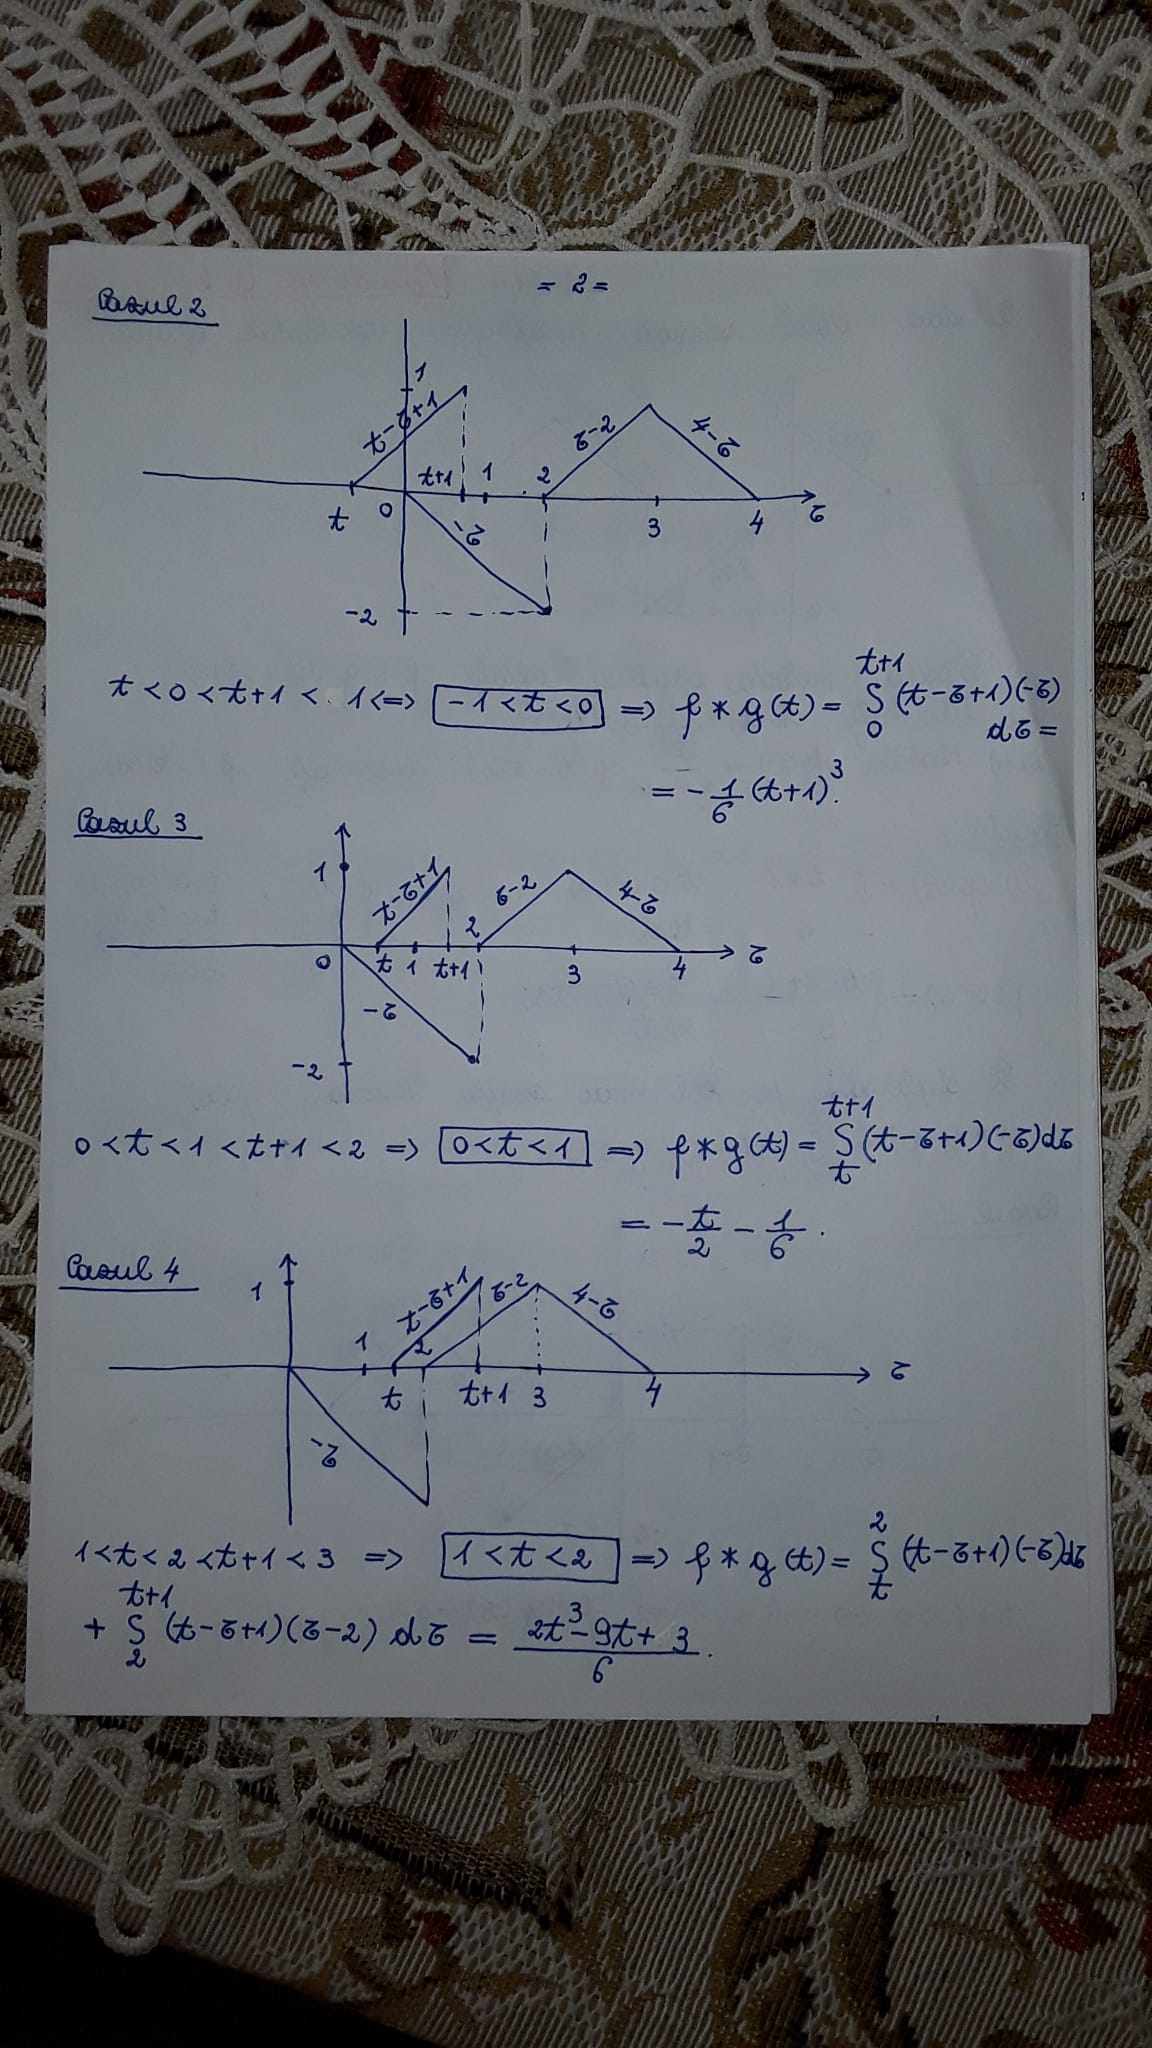 = 2 =
Cazul 2
1
t-τ+1
t+1 1 2 τ-2 4-τ
t 0 -τ 3 4 τ
-2
t < 0 < t+1 < 1 <=> -1 < t < 0 => f * g(t) = ∫₀^{t+1} (t-τ+1)(-τ) dτ =
= -1/6 (t+1)³.
Cazul 3
1 t-τ+1 τ-2 4-τ
2
0 t 1 t+1 3 4 τ
-τ
-2
0 < t < 1 < t+1 < 2 => 0 < t < 1 => f * g(t) = ∫ₜ^{t+1} (t-τ+1)(-τ)dτ
= -t/2 - 1/6.
Cazul 4
1 t-τ+1 τ-2 4-τ
1 2 τ
t t+1 3 4
-τ
1 < t < 2 < t+1 < 3 => 1 < t < 2 => f * g(t) = ∫ₜ² (t-τ+1)(-τ)dτ
+ ∫₂^{t+1} (t-τ+1)(τ-2) dτ = (2t³-9t+3)/6.